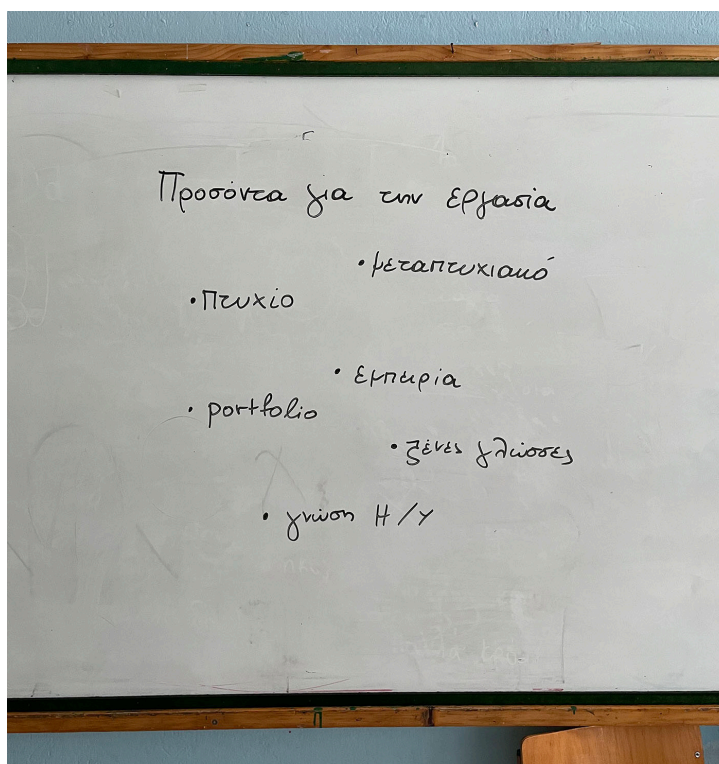 Προσόντα για την εργασία
• μεταπτυχιακό
• Πτυχίο
• εμπειρία
• portfolio
• ξένες γλώσσες
• γνώση Η/Υ